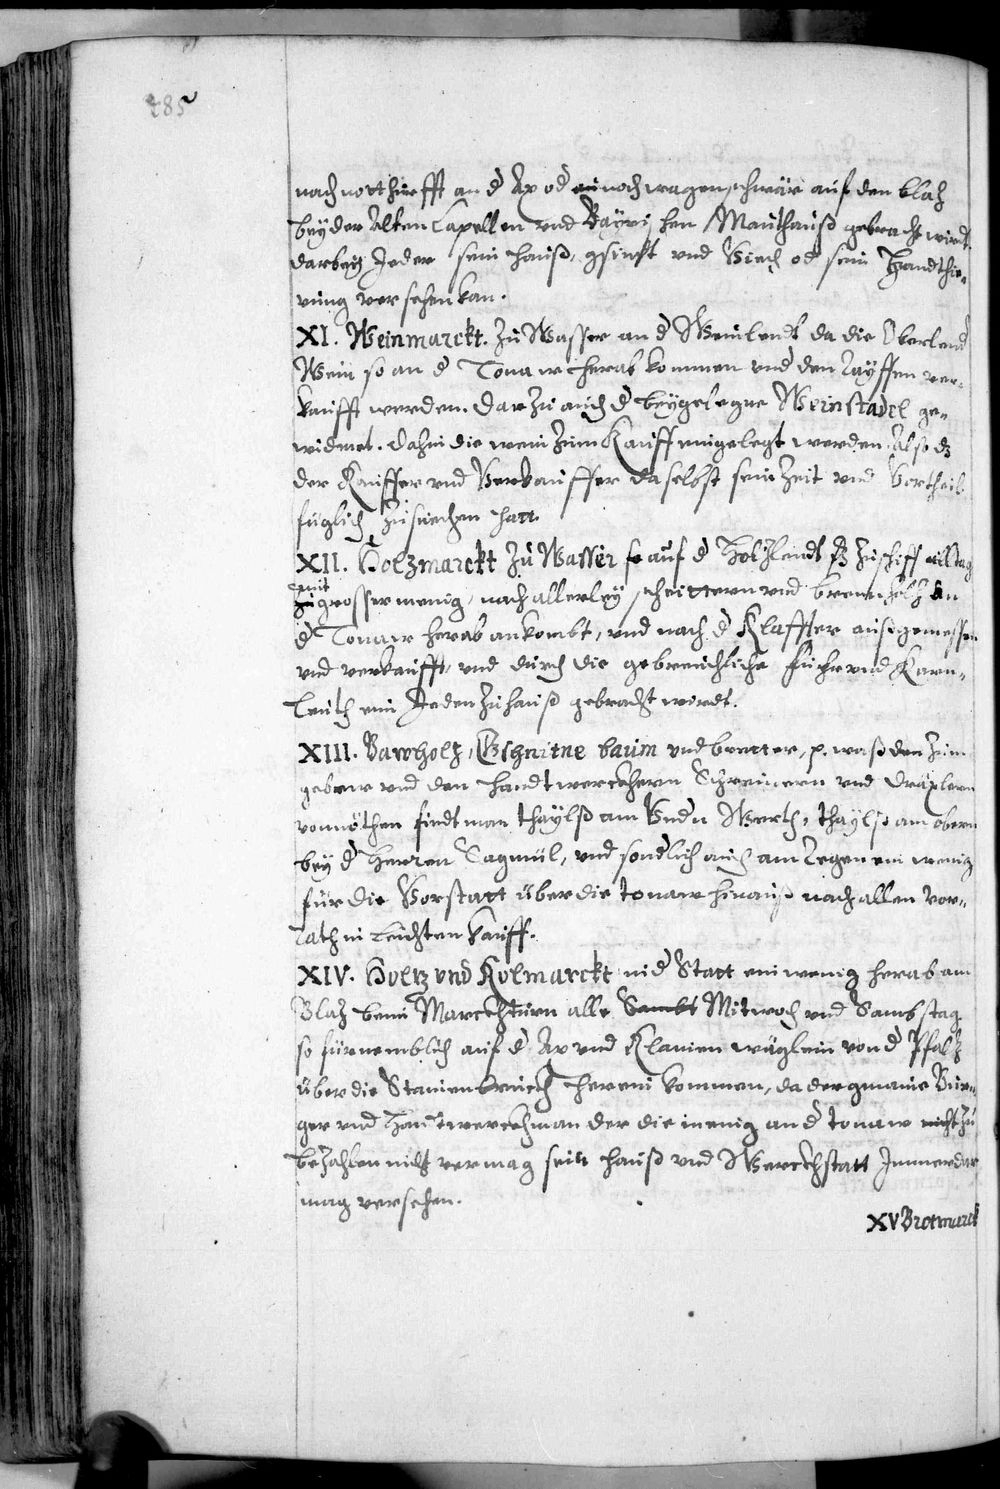 285
nach notthurfft an d Ax od einoch wagen, schwäre auf den blatz
bey der Alten Capellen vnd Bayrischen Mauthauß gebracht wirdt.
darbey Jeder sein hauß, gsindt vnd Viech od sein Handthie=
rung versehen kan.
XI. Weinmarckt. Zu Wasser an d Weinlendt da die Oberlend
Wein so an d Tonaw herab kommen vnd den Rayffen ver=
kaufft werden. Dar zu auch d beygelegne Weinstadel ge=
widmet. dahin die wein zum Kauff eingelegt werden. Also dz
der Kauffer vnd Verkauffer daselbst sein Zeit vnd Vortheil
füglich zusuechen hatt.
XII. Holzmarckt Zu Wasser so auf d Holzlendt zu schiff all tag
mit
zu grosser menig, nach allerley scheittern vnd brennholz an
d Tonaw herab ankombt, vnd nach d Klaffter außgemessen
vnd verkaufft, vnd durch die gebreuchliche fuhr vnd Karn=
leuth eim Jeden zu hauß gebracht wirdt.
XIII. Bawholtz, Gschnitne baum vnd bretter, p. waß den zum
gebew vnd den handtwerckhern Schreinern vnd Dräxlern
vonnöthen findt man thaylß am Vndn Werth, thaylß am obern
bey d Herren Sagmül, vnd sondlich auch am Regen ein wenig
für die Vorstatt über die tonaw hinauß nach allen vor=
rath in leichten kauff.
XIV. Holtz vnd Kolmarckt in d Statt ein wenig herab am
Blatz beim Marckthturn alle Sambt Mitwoch vnd Sambstag
so fürnemblich auf d Ax vnd Klainen wäglein von d Pfaltz
über die Stainen bruckh herein kommen, da der gmaine Bur=
ger vnd handtwerckhman der die menig an d tonaw nicht zu
bezahlen nicht vermag sein hauß vnd Werckhstatt Jmmerdar
mag versehen.
XV Brotmarck